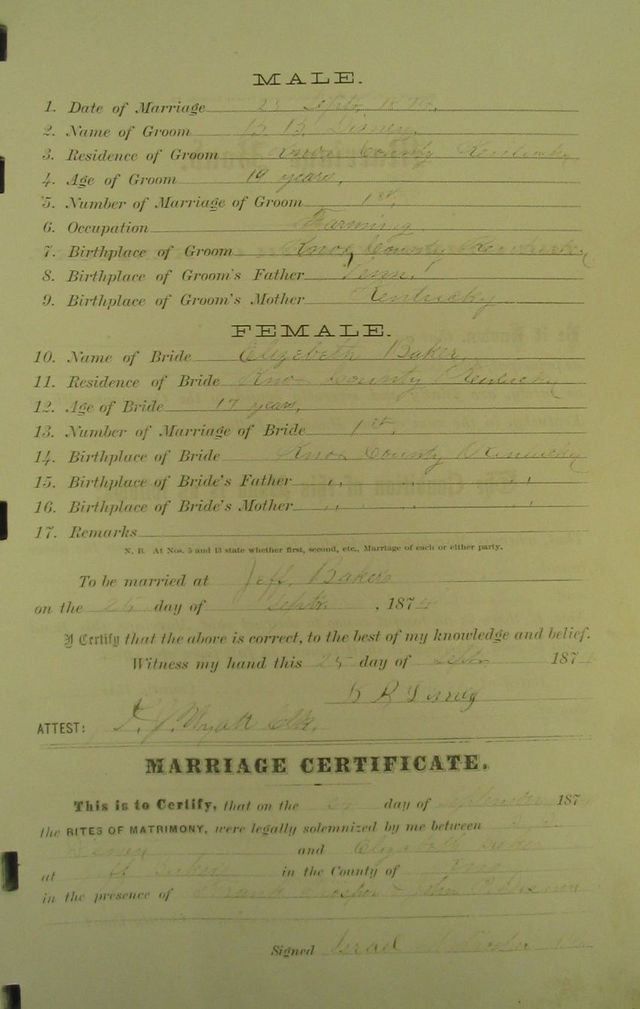 MALE.
1. Date of Marriage 25 Septr. 187
2. Name of Groom B. B. Disney
3. Residence of Groom Knox County Kentucky
4. Age of Groom 19 years,
5. Number of Marriage of Groom 1st.
6. Occupation Farming
7. Birthplace of Groom Knox County Kentucky
8. Birthplace of Groom's Father Tenn.
9. Birthplace of Groom's Mother Kentucky
FEMALE.
10. Name of Bride Elizebeth Baker.
11. Residence of Bride Knox County Kentucky
12. Age of Bride 17 years,
13. Number of Marriage of Bride 1st.
14. Birthplace of Bride Knox County Kentucky
15. Birthplace of Bride's Father " " "
16. Birthplace of Bride's Mother " " "
17. Remarks
N. B. At Nos. 5 and 13 state whether first, second, etc., Marriage of each or either party.
To be married at Jeff. Bakers
on the day of Septr. , 187
I Certify that the above is correct, to the best of my knowledge and belief.
Witness my hand this 25 day of Septr 187
ATTEST: Wyatt Clk.
MARRIAGE CERTIFICATE.
This is to Certify, that on the day of September 187
the RITES OF MATRIMONY, were legally solemnized by me between
Disney and Elizebeth Baker
at in the County of Knox
in the presence of Frank &
Signed Israel